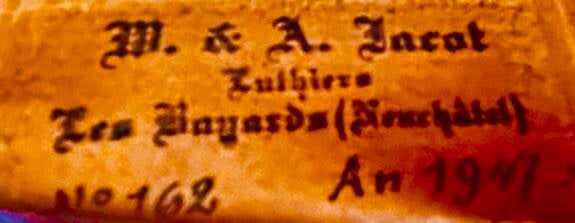 W. & A. Jacot
Luthiers
Les Bayards (Neuchâtel)
No 162 An 1947